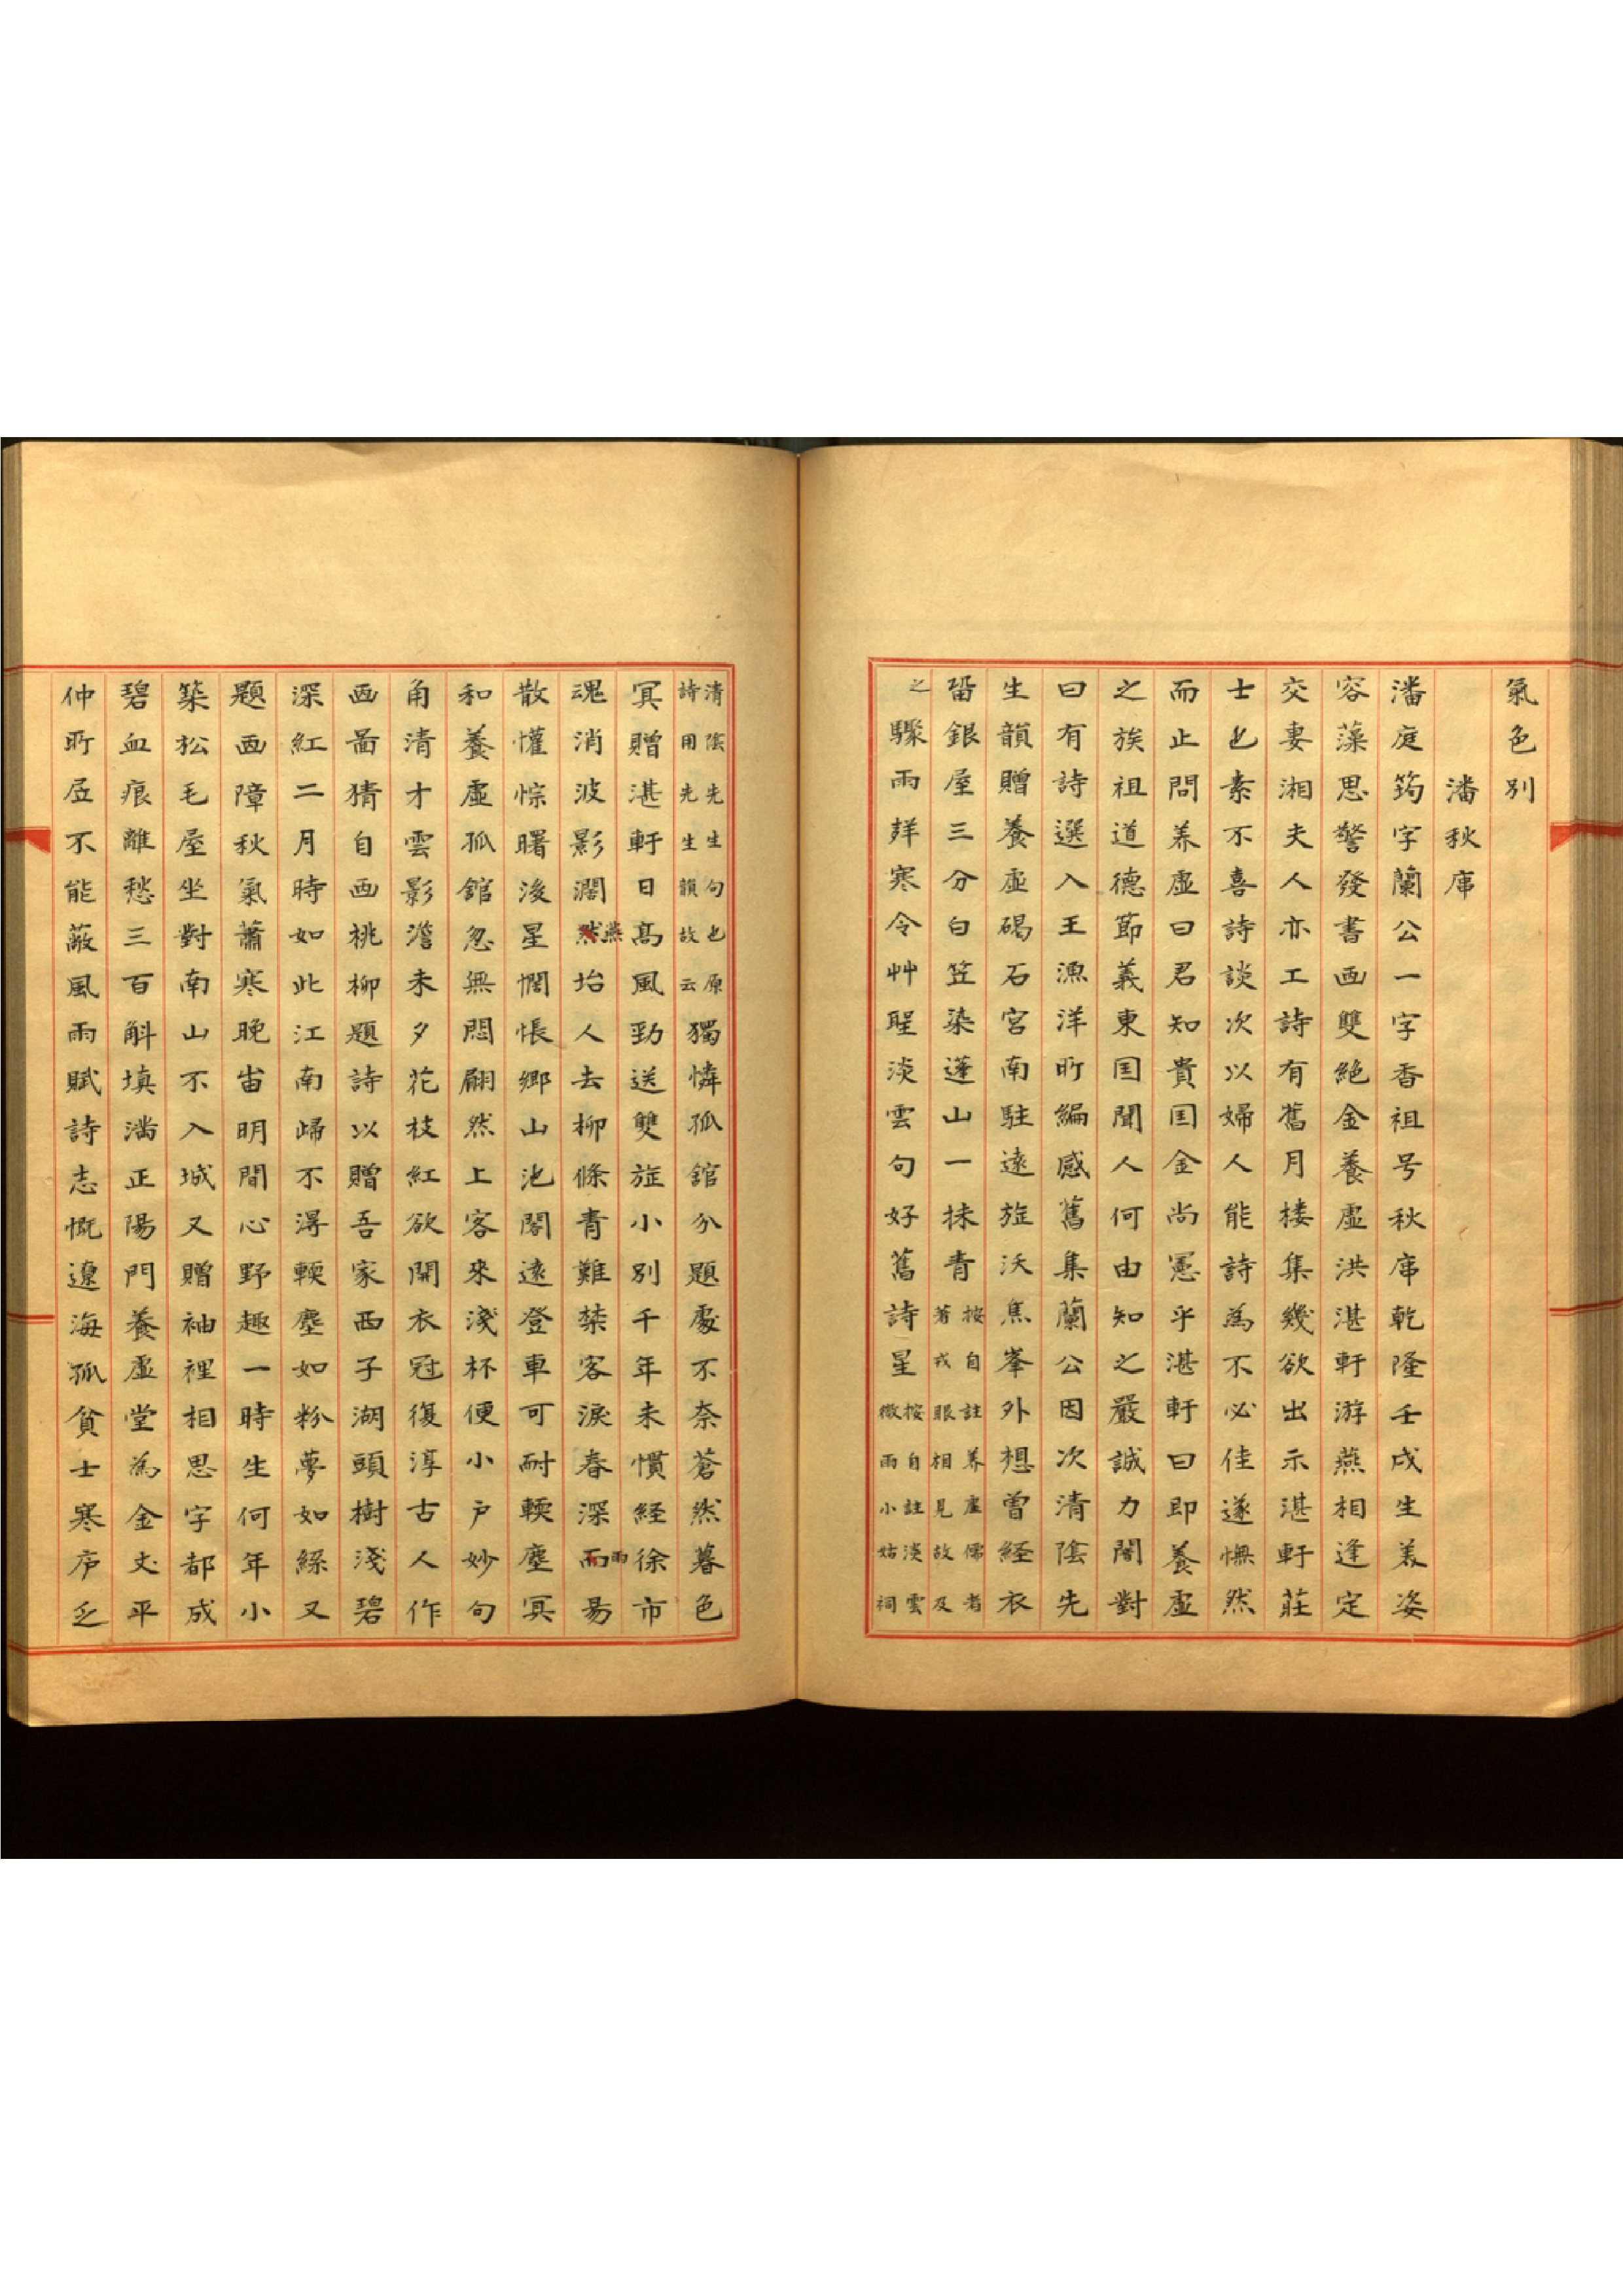 氣色別
潘秋𢊁
潘庭筠字蘭公一字香祖号秋𢊁乾隆壬戌生美姿
容藻思警發書画雙絶金養虛洪湛軒游燕相逢定
交妻湘夫人亦工詩有舊月楼集幾欲出示湛軒莊
士也素不喜詩談次以婦人能詩為不必佳遂憮然
而止問养虛曰君知貴囯金尚憲乎湛軒曰即養虛
之族祖道德節義東囯聞人何由知之嚴誠力闇對
曰有詩選入王漁洋所編感舊集蘭公因次清陰先
生韻贈養虛碣石宮南駐遠旌沃焦峯外想曾経衣
畱銀屋三分白笠染蓬山一抹青按自註养虛儒者著戎眼相見故及
之驟雨牂寒令艸聖淡雲句好舊詩星按自註淡雲微雨小姑祠
清陰先生句也原詩用先生韻故云獨憐孤舘分題處不奈蒼然暮色
冥贈湛軒日髙風勁送雙旌小別千年未慣経徐市
魂消波影濶燕坮人去柳條青難禁客淚春深雨易
散懽悰曙後星惆悵鄉山池閣遠登車可耐輭塵冥
和養虛孤舘忽無悶翩然上客來淺杯便小戶妙句
角清才雲影澹未夕花枝紅欲開衣冠復淳古人作
画畐猜自画桃柳題詩以贈吾家西子湖頭樹淺碧
深紅二月時如此江南歸不淂輭塵如粉夢如絲又
題画障秋氣蕭寒晚宙明閒心野趣一時生何年小
築松毛屋坐對南山不入城又贈袖裡相思字都成
碧血痕離愁三百斛填满正陽門養虛堂為金丈平
仲所居不能蔽風雨賦詩志慨遼海孤貧士寒庐乏